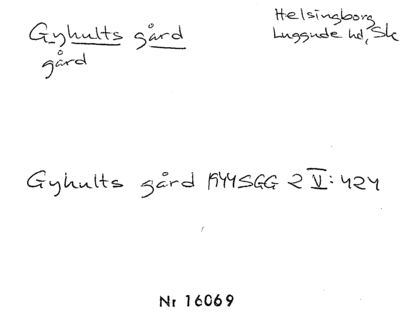 Gyhults gård
gård
Helsingborg
Luggude hd, Sk
Gyhults gård 1944 SGG 2 V: 424
Nr 16069